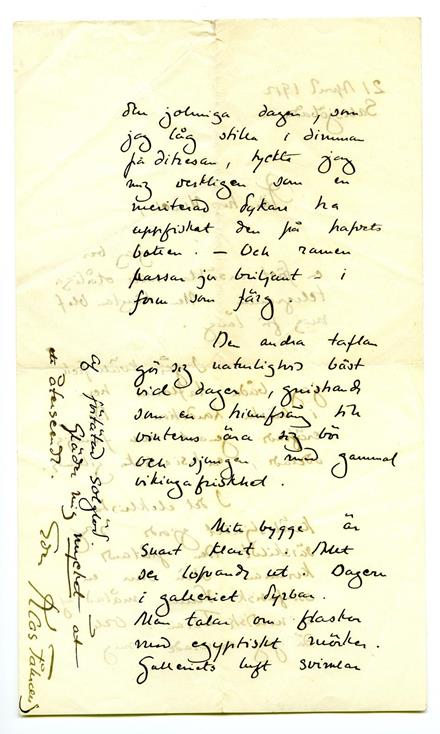 den jolmiga dagen, som
jag låg stilla i dimman
på ditresan, tyckte jag
mig verkligen som en
meriterad dykare ha
uppfisket den på hafvets
botten. — Och ramen
passar ju briljant i
form som färg.
Den andra taflan
gör sig naturligtvis bäst
vid dager, gnistrande
som en triumfsång till
vinterns ära sig bör
och sjungen med gammal
vikingafriskhet.
Mitt bygge är
snart klart. Allt
ser lofvande ut. Dagern
i galleriet dyrbar.
Man talar om flaskor
med egyptiskt mörker.
Galleriets luft svimlar
af förtätad solglöd.
Gläder mig mycket at
återseende.
Klas Fåhraeus
21 April 1912